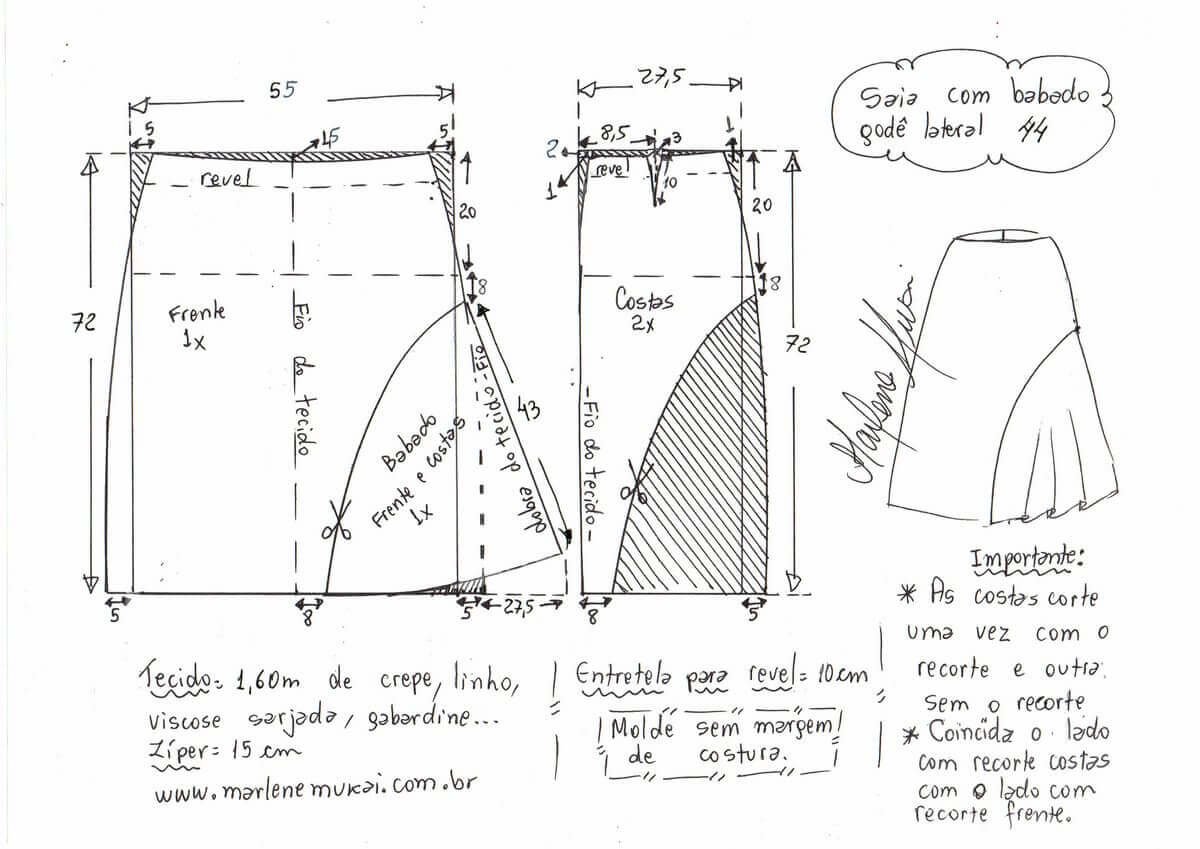 Saia com babado
godê lateral 44
55
5
1,5
5
revel
20
72
8
Frente
1x
Fio do tecido
43
Babado
Frente e costas
1x
Fio do tecido
dobra
5
8
5
27,5
27,5
2
8,5
3
1
1
revel
10
20
8
Costas
2x
72
Fio do tecido
8
5
Marlene Mukai
Tecido= 1,60m de crepe, linho,
viscose sarjada, gabardine...
Zíper= 15 cm
www.marlenemukai.com.br
Entretela para revel= 10cm
Molde sem margem
de costura.
Importante:
* As costas corte
uma vez com o
recorte e outra
sem o recorte
* Coincida o lado
com recorte costas
com o lado com
recorte frente.